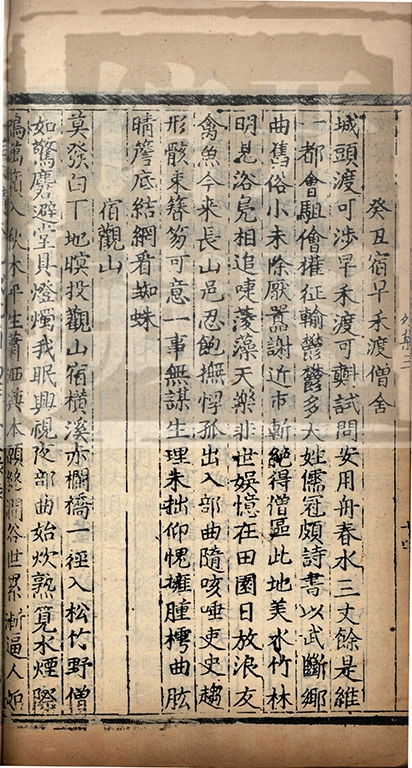 癸丑宿早禾渡僧舍
城頭渡可涉早禾渡可試問安用舟春水三丈餘是維
一都會駔儈權征輸鬱鬱多大姓儒冠頗詩書以武斷鄉
曲舊俗小未除厭囂謝近市斬絕得僧區此地美水竹林
明見浴鳧相追唼菱藻天樂非世娛憶在田園日放浪友
禽魚今来長山邑忍飽撫惸孤出入部曲隨咳唾吏史趨
形骸束簪笏可意一事無謀生理未拙仰愧擁腫樗曲肱
晴簷底結網看蜘蛛
宿觀山
莫發白下地暝投觀山宿橫溪赤欄橋一徑入松竹野僧
如驚麏避堂具燈燭我眠興視夜部曲始炊熟筧水煙際
鳴萬籟入秋木平生瀟洒興本願終澗谷世累漸逼人如